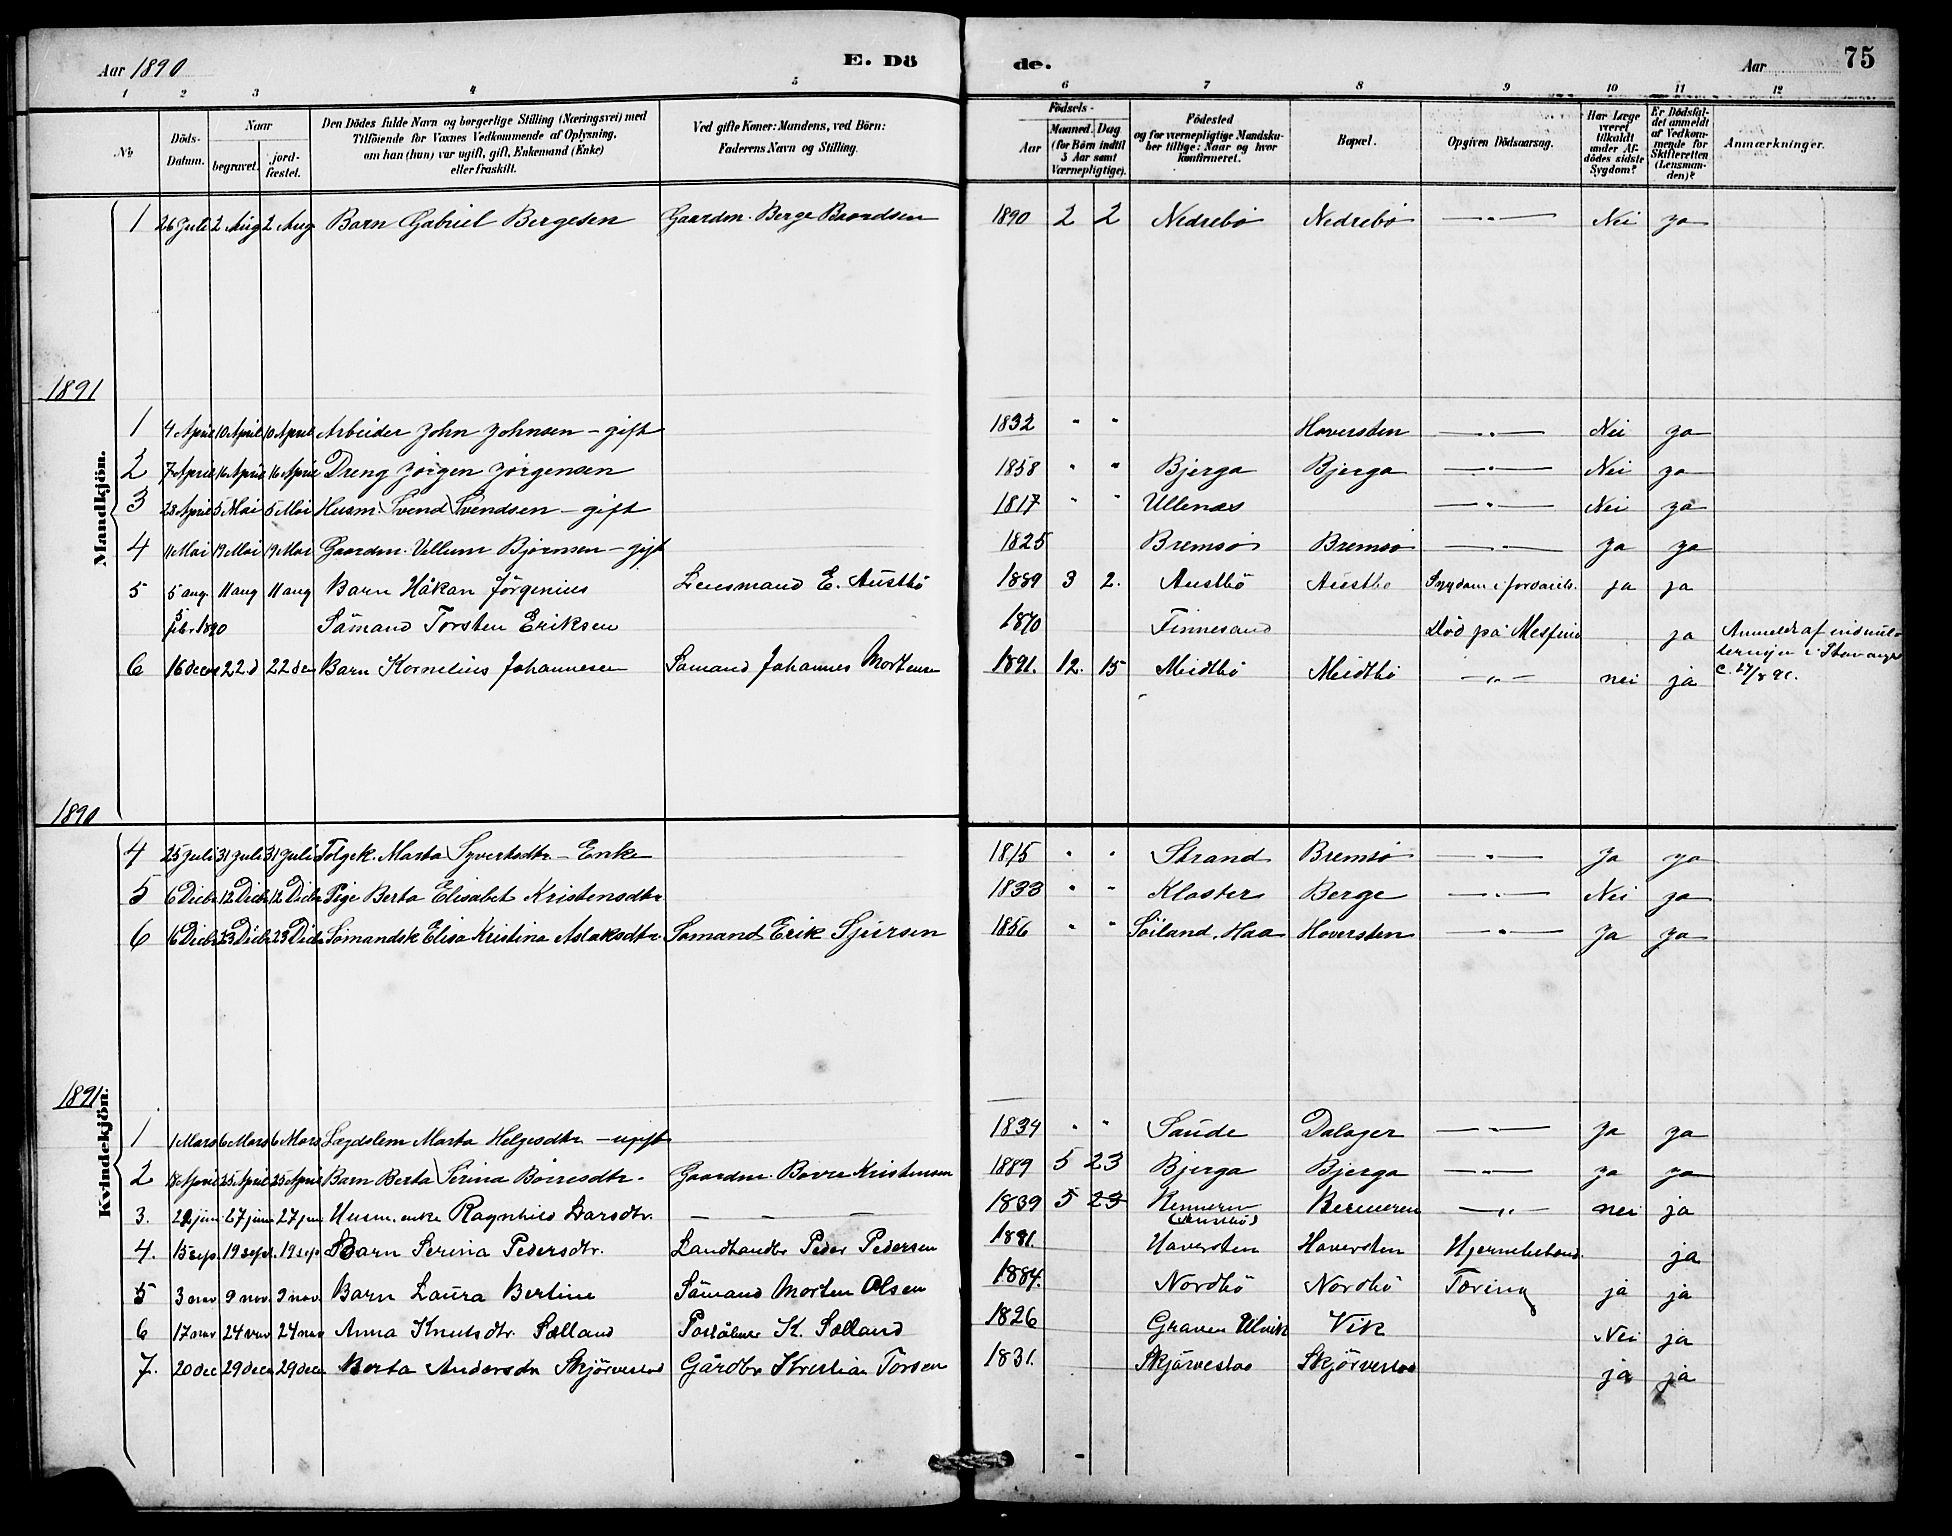 Aar 1890 E. Dö de. Aar 75
1 2 3 4 5 6 7 8 9 10 11 12
No Döds-Datum. Naar begravet. jord-fæstet. Den Dödes fulde Navn og borgerlige Stilling (Næringsvei) med Tilföiende for Voxnes Vedkommende af Oplysning, om han (hun) var ugift, gift, Enkemand (Enke) eller fraskilt. Ved gifte Koner: Mandens, ved Börn: Faderens Navn og Stilling. Födsels- Aar Maaned. Dag (for Börn indtil 5 Aar samt Værnepligtige). Födested og for værnepligtige Mandskaber tillige: Naar og hvor konfirmeret. Bopæl. Opgiven Dödsaarsag. Har Læge været tilkaldt under Afdödes sidste Sygdom? Er Dödsfaldet anmeldt af Vedkommende for Skifteretten (Lensmanden)? Anmærkninger.
1 26 Juli 2 Aug 2 Aug Barn Gabriel Bergesen Gaardm. Berge Baardsen 1890 2 2 Nedrebö Nedrebö —"— Nei ja
1891
Mandkjön.
1 4 April 10 April 10 April Arbeider John Johnsen – gift 1832 " " Haversten —"— Nei ja
2 7 April 16 April 16 April Dreng Jörgen Jörgensen 1858 " " Bjerga Bjerga —"— Nei ja
3 28 April 5 Mai 5 Mai Husm. Svend Svendsen – gift 1817 " " Ullenæs —"— Nei ja
4 11 Mai 19 Mai 19 Mai Gaardm. Vellum Bjørnsen – gift 1825 Bremsö Bremsö —"— ja ja
5 5 aug 11 aug 11 aug Barn Håkan Jörgenius Lensmand E. Austbö 1889 3 2. Austbö Austbö Sygdom i ja ja
5 febr 1890 Sömand Torsten Eriksen 1870 Finnesand Död på ja Anmeldt af
6 16 decem 22 d 22 dec Barn Kornelius Johannesen Sömand Johannes Mortensen 1891. 12. 15 Meidtbö Meidtbö —"— nei ja i Stavanger
27/8 91.
1890
4 25 Juli 31 Juli 31 Juli Fölgek. Marta Syvertsdtr – Enke 1815 " " Strand Bremsö —"— ja ja
5 6 Decbr 12 Decbr 12 Decbr Pige Berta Elisabet Kristensdtr 1833 " " Kloster Berge —"— Nei ja
6 16 Decbr 23 Decbr 23 Decbr Sömandsk Elisa Kristina Aslaksdtr Sömand Erik Sjursen 1856 " " Söiland, Haa Haversten —"— ja ja
1891
Kvindekjön.
1 1 Mars 6 Mars 6 Mars Lægdslem Marta Helgesdtr – ugift 1834 " " Saude Dalager —"— ja ja
2 18 April 25 April 25 April Barn Berta Serina Böiresdtr. Gaardm. Bovre Kristensen 1889 5 23 Bjerga Bjerga —"— ja ja
3. 22 juni 27 juni 27 juni Husm. enke Ragnhild Larsdtr. — — — 1839 5 23 —"— nei ja
4. 15 sep. 19 sept. 19 sep. Barn Serina Pedersdtr. Landhandler Peder Pedersen 1891. Haversten Haversten ja
5 3 nov 9 nov. 9 nov. Barn Laura Bertine Sömand Morten Olsen 1884. Nordbö Nordbö Tæring ja ja
6 17 nov 24 nov 24 nov Anna Knutsdtr. Sælland K. Sælland 1826 Graven Ulvik Vik Nei ja
7. 20 dec 29 dec 29 dec Berta Andersdr Skjörvestad Gårdbr Kristian Torsen 1831. Skjörvestad Skjörvestad ja ja